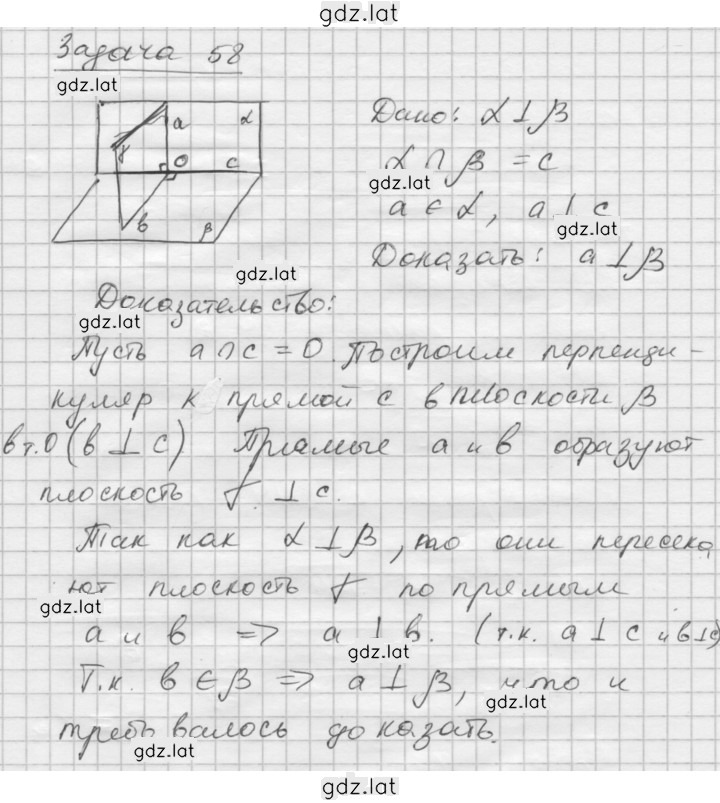 gdz.lat
Задача 58
gdz.lat
a α
γ
O c
b β
Дано: α ⊥ β
α ∩ β = c
gdz.lat
a ∈ α, a ⊥ c
gdz.lat
Доказать: a ⊥ β
gdz.lat
Доказательство:
gdz.lat
Пусть a ∩ c = O. Построим перпенди-
куляр к прямой c в плоскости β
в т.O (b ⊥ c) Прямые a и b образуют
плоскость γ ⊥ c.
Так как α ⊥ β, то они пересека
ют плоскость γ по прямым
gdz.lat
a и b => a ⊥ b. (т.к. a ⊥ c и b ⊥ c)
gdz.lat
Т.к. b ∈ β => a ⊥ β, что и
gdz.lat
требовалось доказать.
gdz.lat
gdz.lat